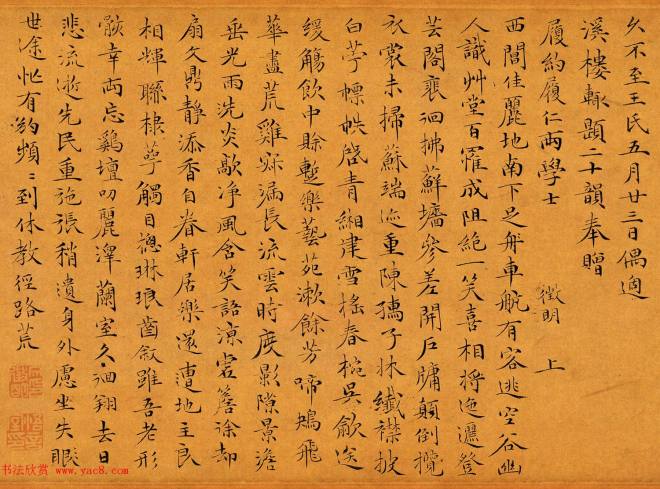 久不至王氏五月廿三日偶過
溪樓輙題二十韻奉贈
履約履仁兩學士
徵明 上
西閶佳麗地南下足車航有客逃空谷幽
人識艸堂百罹成阻絕一笑喜相將迤邐登
芸閣裵徊拂蘚墻參差開戶牖顛倒攬
衣裳未掃蘇端迹重陳孺子牀纖襟披
白苧幖帙啓青緗津雪搖春椀吳歈送
緩觴飲中賒蹔樂藝苑漱餘芳啼鴂飛
華盡荒雞寐漏長流雲時度影隙景澹
垂光雨洗炎歊净風含笑語涼簷涂却
扇久鼎靜添香自眷軒居樂還遭地主良
相輝聯棣萼觸目總琳琅齒敘雖吾老形
骸幸兩忘鷄壇叨麗澤蘭室久翔去日
悲流逝先民重施張稍遺身外慮坐失眼
世途忙有約頻〻到休教徑路荒
书法欣赏
www.yac8.com